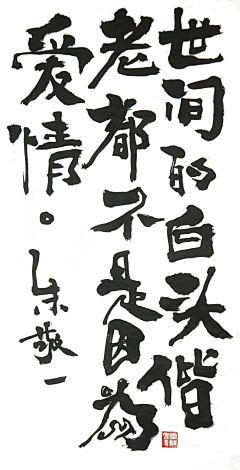 世间的白头偕
老都不是因为
爱情。
朱敬一